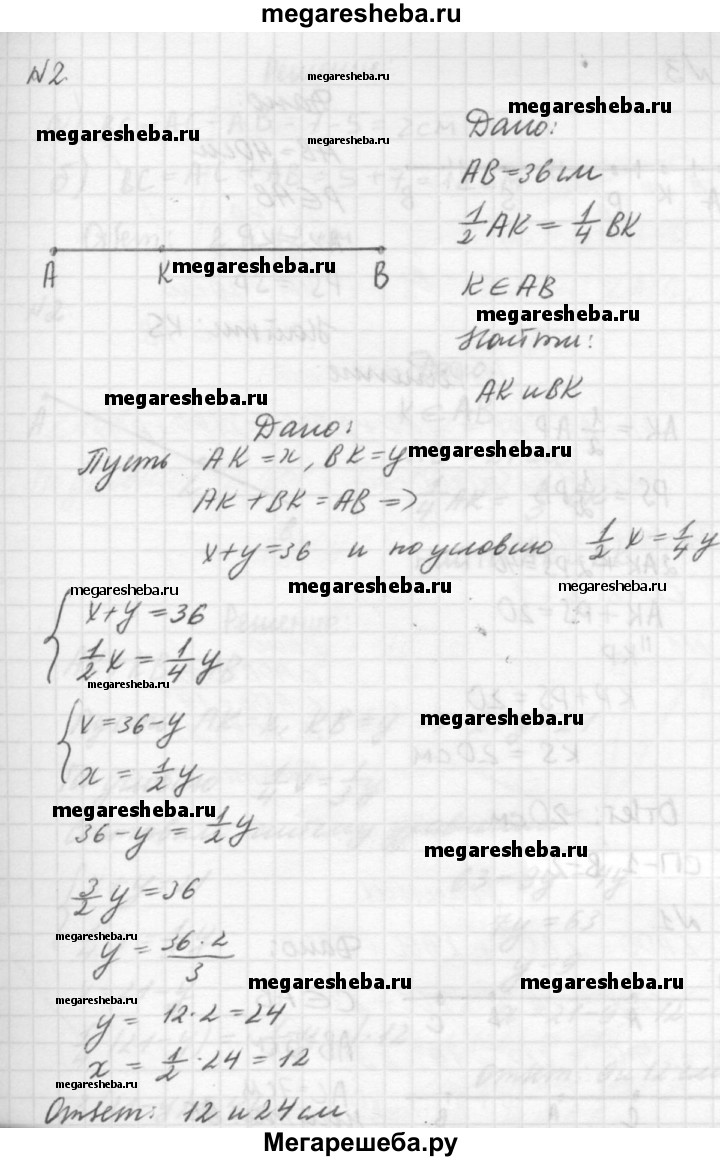 megaresheba.ru
№2.
megaresheba.ru
megaresheba.ru
megaresheba.ru
megaresheba.ru
Дано:
AB=36см
1/2 AK = 1/4 BK
A K B
megaresheba.ru
K ∈ AB
megaresheba.ru
Найти:
AK и BK
megaresheba.ru
Дано:
Пусть AK = x, BK = y
megaresheba.ru
AK + BK = AB =>
x+y=36 и по условию 1/2 x = 1/4 y
megaresheba.ru
megaresheba.ru
megaresheba.ru
{ x+y=36
1/2 x = 1/4 y
megaresheba.ru
{ x=36-y
megaresheba.ru
x = 1/2 y
megaresheba.ru
36-y = 1/2 y
megaresheba.ru
3/2 y = 36
megaresheba.ru
y = 36·2/3
megaresheba.ru
megaresheba.ru
megaresheba.ru
y = 12·2=24
x = 1/2 · 24 = 12
megaresheba.ru
Ответ: 12 и 24 см
Мегарешеба.ру